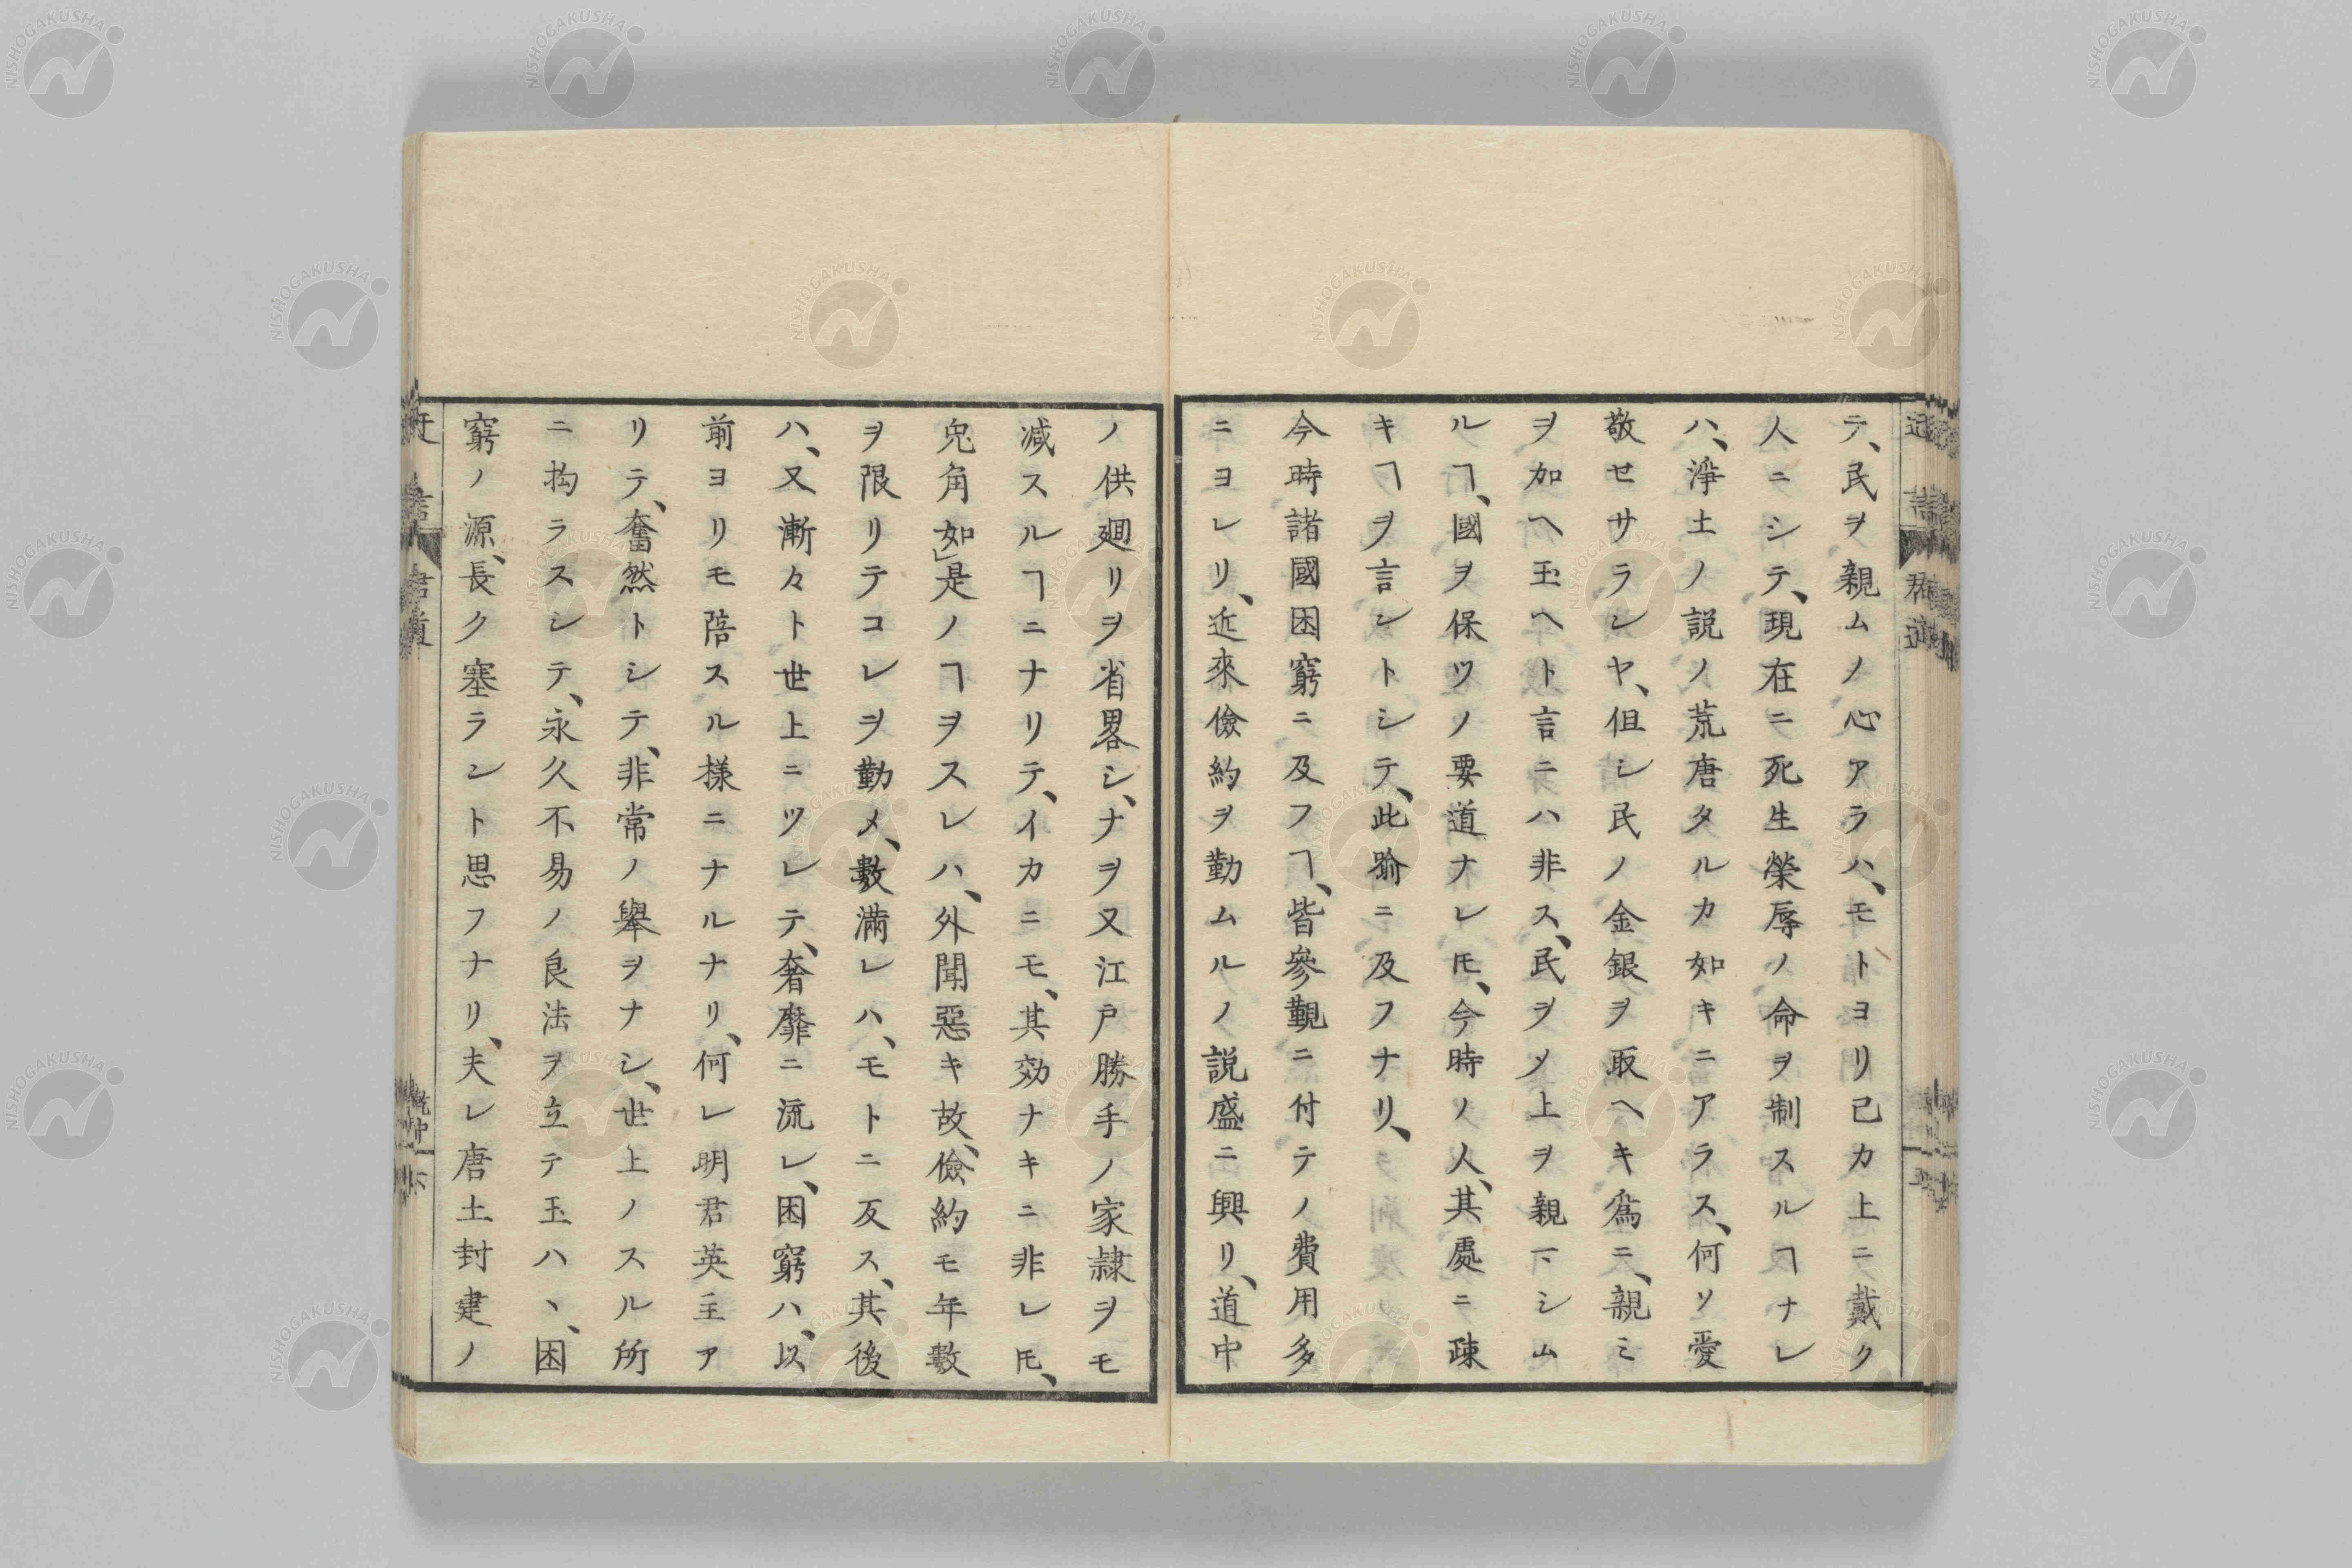 テ、民ヲ親ムノ心アラハ、モトヨリ己カ上ニ戴ク
人ニシテ、現在ニ死生榮辱ノ命ヲ制スルヿナレ
ハ、淨土ノ説ノ荒唐タルカ如キニアラス、何ソ愛
敬セサランヤ、但シ民ノ金銀ヲ取ヘキ爲ニ、親ミ
ヲ加ヘ玉ヘト言ニハ非ス、民ヲメ上ヲ親マシム
ルヿ、國ヲ保ツノ要道ナレ𪜈、今時ノ人、其處ニ疎
キヿヲ言ントシテ、此喩ニ及フナリ、
今時諸國困窮ニ及フヿ、皆參覲ニ付テノ費用多
ニヨレリ、近來儉約ヲ勤ムルノ説盛ニ興リ、道中
ノ供廻リヲ省畧シ、ナヲ又江戸勝手ノ家隷ヲモ
減スルヿニナリテ、イカニモ、其効ナキニ非レ𪜈、
兎角如是ノヿヲスレハ、外聞惡キ故、儉約モ年數
ヲ限リテコレヲ勤メ、數滿レハ、モトニ反ス、其後
ハ、又漸々ト世上ニツレテ、奢靡ニ流レ、困窮ハ、以
前ヨリモ陪スル様ニナルナリ、何レ明君英主ア
リテ、奮然トシテ、非常ノ擧ヲナシ、世上ノスル所
ニ拘ラスシテ、永久不易ノ良法ヲ立テ玉ハヽ、困
窮ノ源、長ク塞ラント思フナリ、夫レ唐土封建ノ
迂言
君道
NISHOGAKUSHA